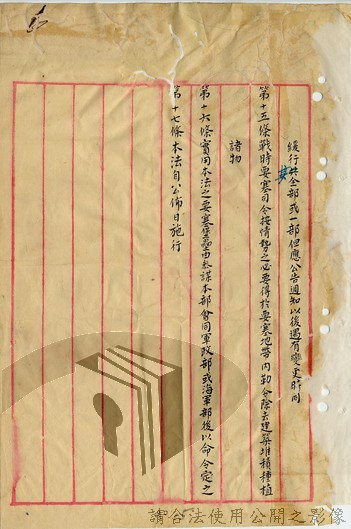 緩行其全部或一部但應公告通知以後遇有變更時同
第十五條戰時要塞司令按情勢之必要得於要塞地帶內勒令除去建築堆積種植
諸物
第十六條實用本法之要塞堡壘由參謀本部會同軍政部或海軍部後以命令定之
第十七條本法自公佈日施行
請合法使用公開之影像